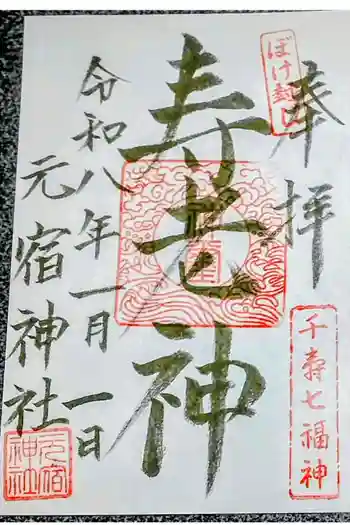 奉拝
ぼけ封じ
千寿七福神
寿老神
令和八年一月一日
元宿神社
元宿神社